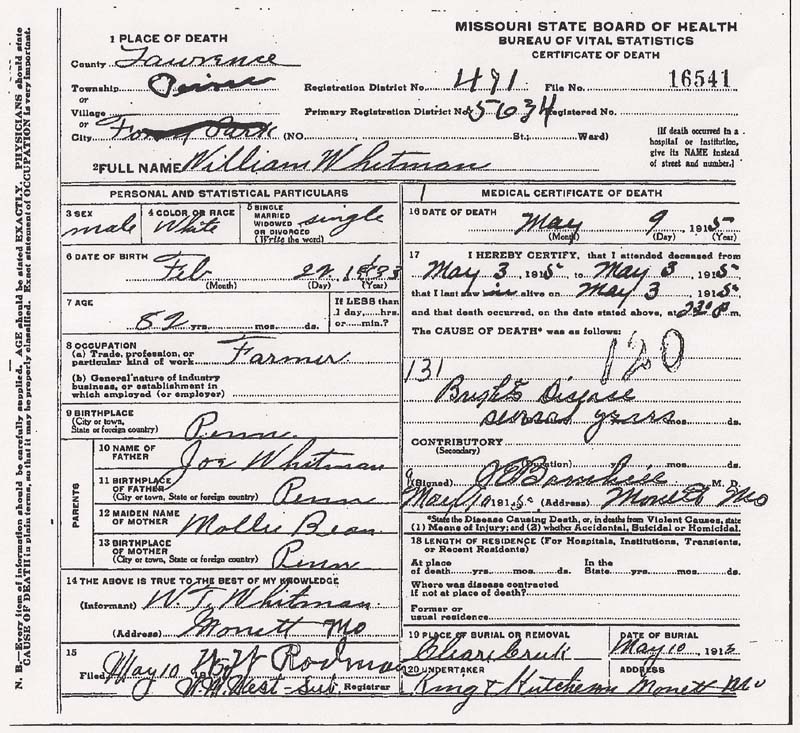 MISSOURI STATE BOARD OF HEALTH
BUREAU OF VITAL STATISTICS
CERTIFICATE OF DEATH
1 PLACE OF DEATH
County Lawrence
Township
or
Village
or
City
Registration District No. 491 File No. 16541
Primary Registration District No. 5634 Registered No.
(NO. St.; Ward)
[If death occurred in a hospital or institution, give its NAME instead of street and number.]
2 FULL NAME William Whitman
PERSONAL AND STATISTICAL PARTICULARS
3 SEX male
4 COLOR OR RACE White
5 SINGLE MARRIED WIDOWED OR DIVORCED (Write the word) single
6 DATE OF BIRTH Feb 22,
(Month) (Day) (Year)
7 AGE 82 yrs. mos. ds.
If LESS than 1 day, hrs. or min.?
8 OCCUPATION
(a) Trade, profession, or particular kind of work Farmer
(b) General nature of industry business, or establishment in which employed (or employer)
9 BIRTHPLACE
(City or town, State or foreign country) Penn.
PARENTS
10 NAME OF FATHER Joe Whitman
11 BIRTHPLACE OF FATHER
(City or town, State or foreign country) Penn
12 MAIDEN NAME OF MOTHER Mollie Bean
13 BIRTHPLACE OF MOTHER
(City or town, State or foreign country) Penn
14 THE ABOVE IS TRUE TO THE BEST OF MY KNOWLEDGE
(Informant) W. T. Whitman
(Address) Monett Mo
15
Filed May 10 191 Rodman
W.W. West-Sub. Registrar
MEDICAL CERTIFICATE OF DEATH
16 DATE OF DEATH May 9, 1915
(Month) (Day) (Year)
17 I HEREBY CERTIFY, that I attended deceased from
May 3, 1915, to May 3, 1915
that I last saw him alive on May 3 1915,
and that death occurred, on the date stated above, at m.
The CAUSE OF DEATH* was as follows:
120
131
Brights Disease
several years mos. ds.
CONTRIBUTORY
(Secondary)
(Duration) yrs. mos. ds.
(Signed) M. D.
May 10 1915 (Address) Monett Mo
*State the Disease Causing Death, or, in deaths from Violent Causes, state (1) Means of Injury; and (2) whether Accidental, Suicidal or Homicidal.
18 LENGTH OF RESIDENCE (For Hospitals, Institutions, Transients, or Recent Residents)
At place of death yrs. mos. ds. In the State yrs. mos. ds.
Where was disease contracted if not at place of death?
Former or usual residence
19 PLACE OF BURIAL OR REMOVAL DATE OF BURIAL
Clear Creek May 10, 191
20 UNDERTAKER ADDRESS
King & Hutcheson Monett Mo
N. B.—Every item of information should be carefully supplied. AGE should be stated EXACTLY. PHYSICIANS should state
CAUSE OF DEATH in plain terms, so that it may be properly classified. Exact statement of OCCUPATION is very important.